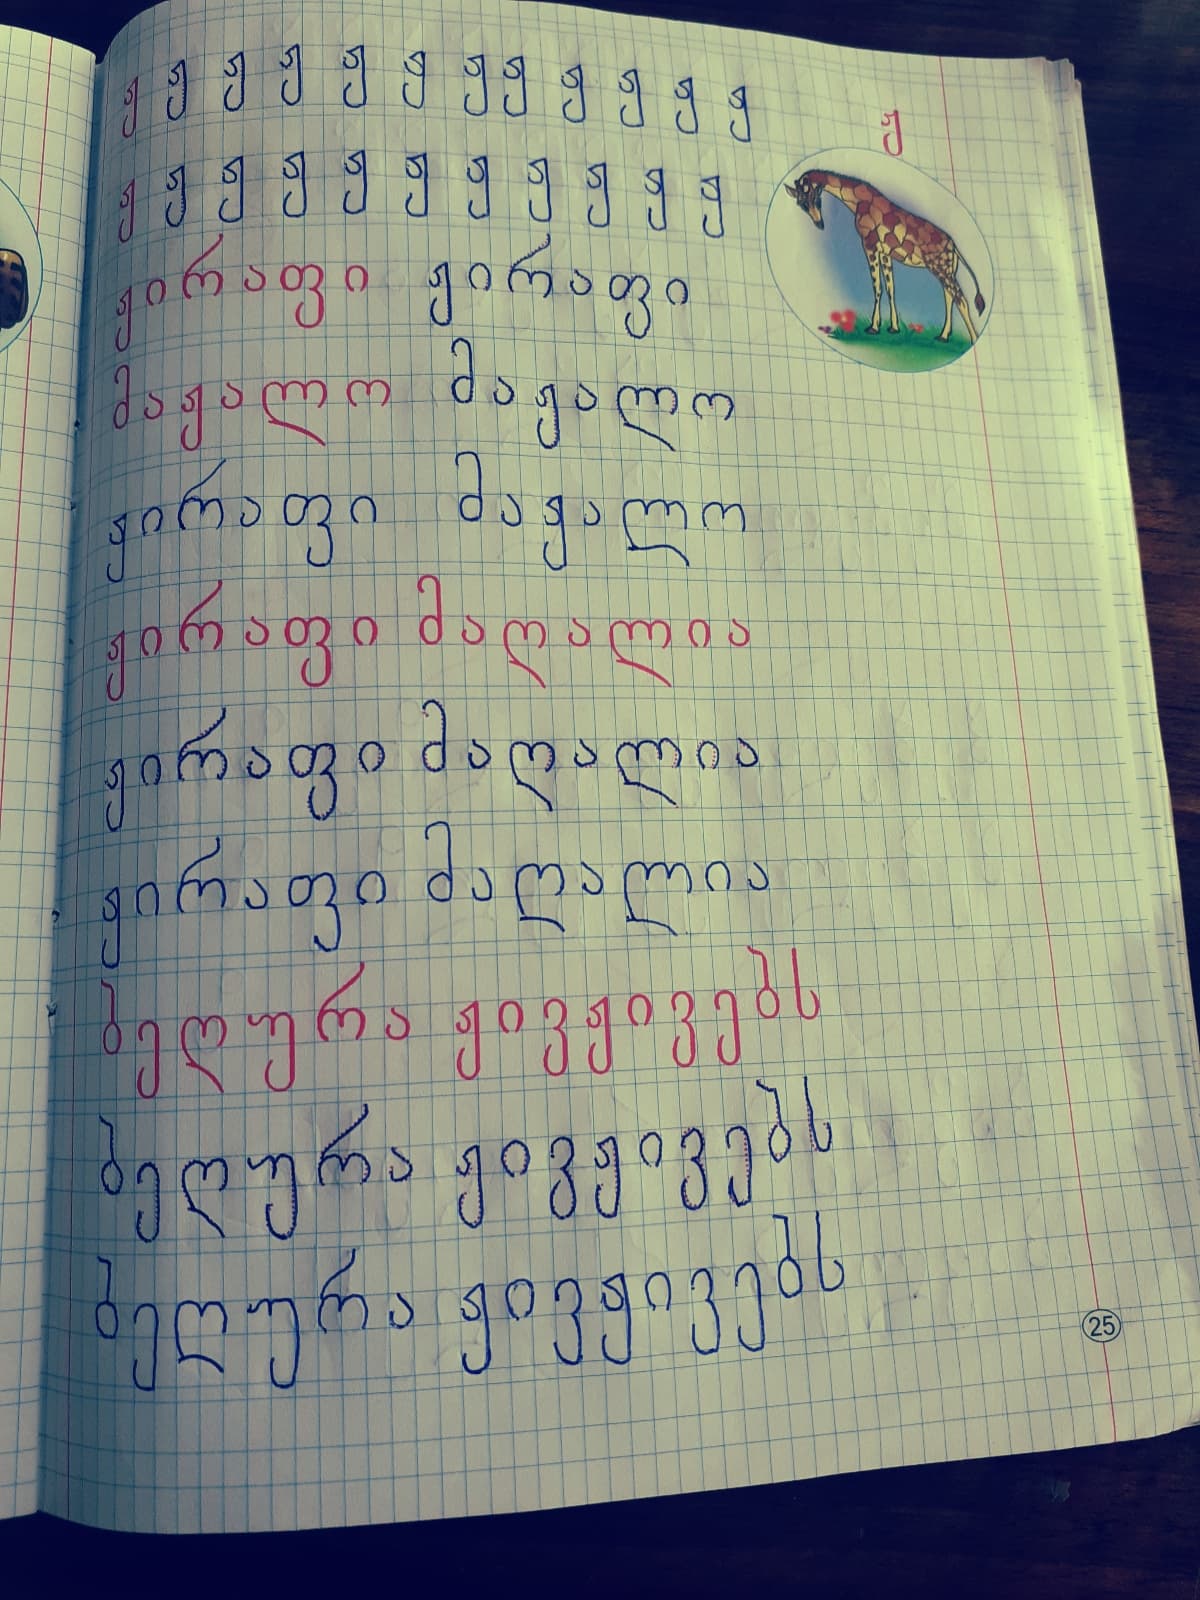 ჟ ჟ ჟ ჟ ჟ ჟ ჟ ჟ ჟ ჟ ჟ ჟ
ჟ
ჟ ჟ ჟ ჟ ჟ ჟ ჟ ჟ ჟ ჟ ჟ
ჟირაფი ჟირაფი
მაჟალო მაჟალო
ჟირაფი მაჟალო
ჟირაფი მაღალია
ჟირაფი მაღალია
ჟირაფი მაღალია
ბეღურა ჟივჟივებს
ბეღურა ჟივჟივებს
ბეღურა ჟივჟივებს
25